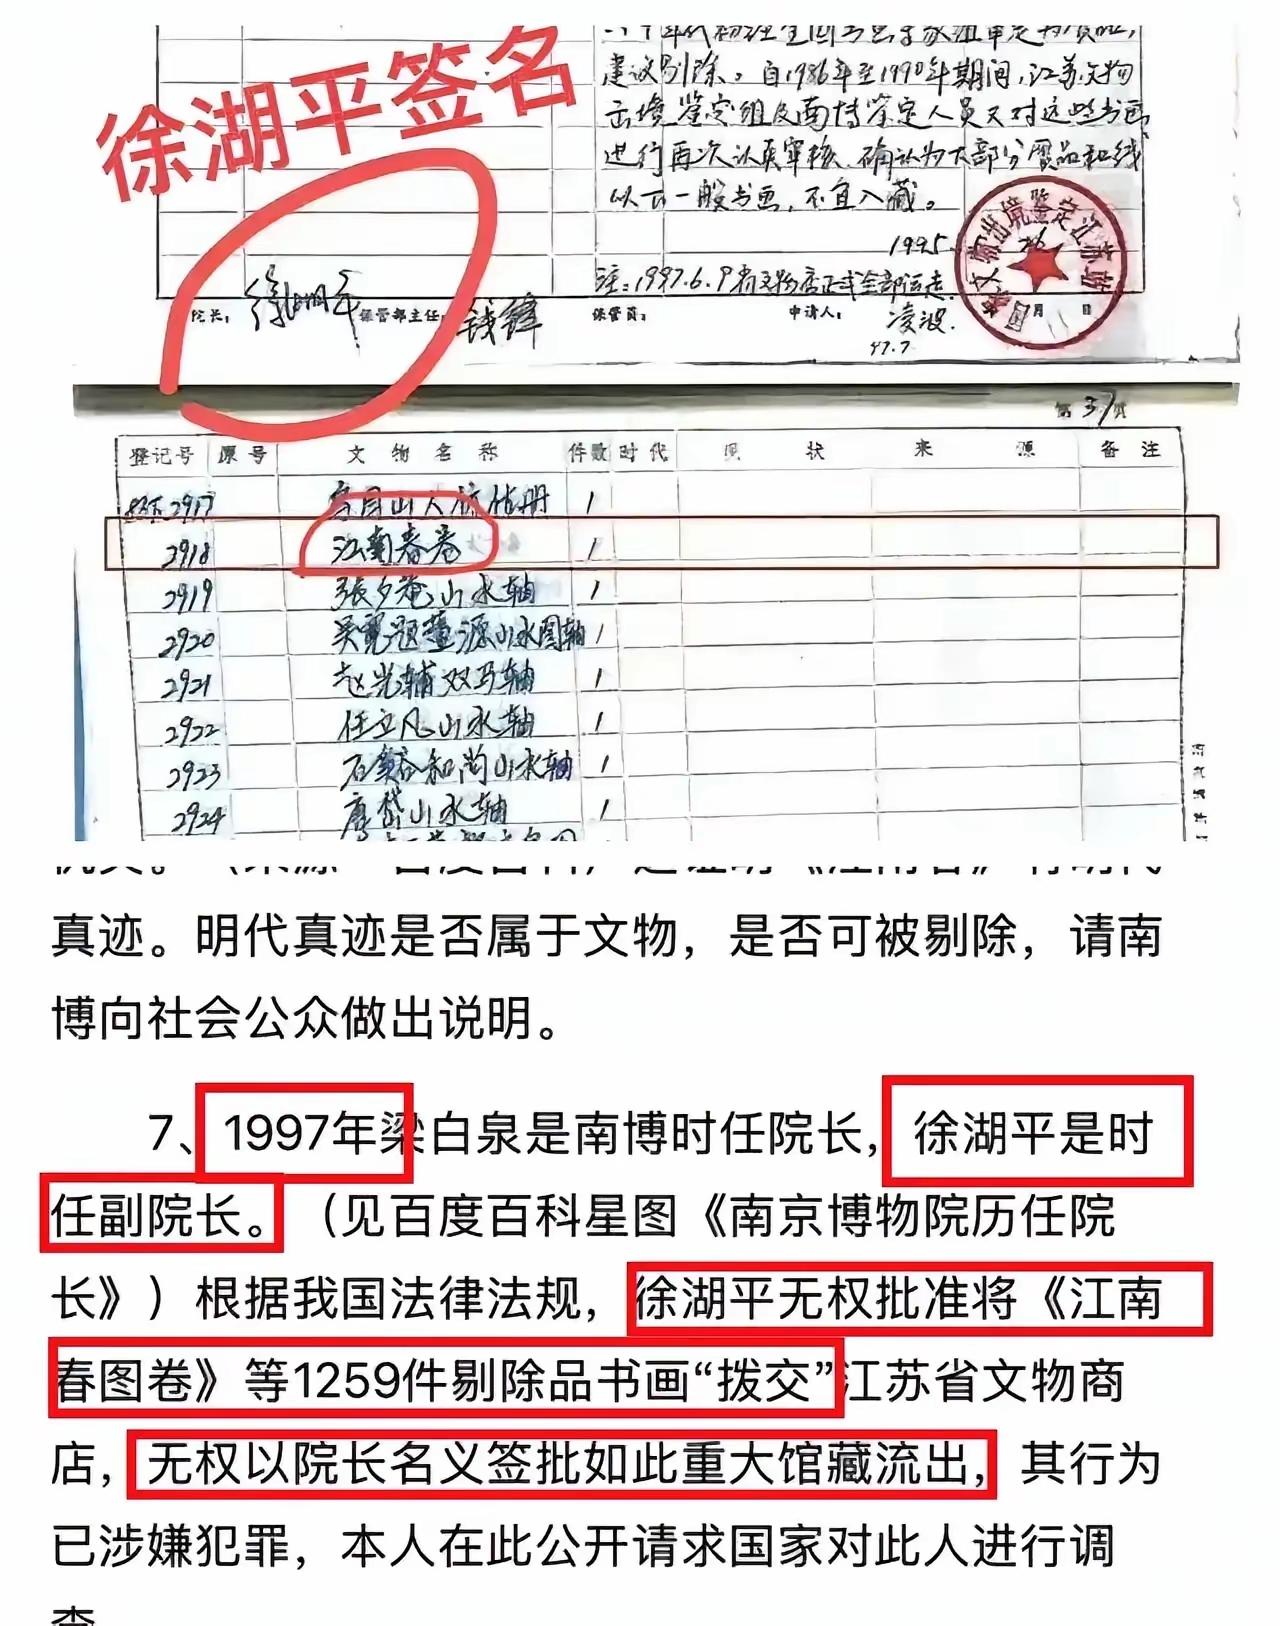 徐湖平签名
建议剔除。自1986年至1990年期间,江苏文物
出境鉴定组及南博鉴定人员又对这些书画
进行再次认真审核,确认为大部分赝品和线
以下一般书画,不宜入藏。
1995
注:1997.6.9省文物店正式全部运走.
院长: 徐湖平 保管部主任: 钱锋 保管员: 申请人: 凌波. 月 日
97.7
第37页
登记号 原号 文物名称 件数 时代 现状 来源 备注
2917 1
2918 江南春卷 1
2919 張夕菴山水轴 1
2920 吴寬题董源山水图轴 1
2921 赵光辅双马轴 1
2922 任立凡山水轴 1
2923 石谿和尚山水轴 1
2924 唐岱山水轴 1
真迹。明代真迹是否属于文物，是否可被剔除，请南
博向社会公众做出说明。
7、1997年梁白泉是南博时任院长，徐湖平是时
任副院长。（见百度百科星图《南京博物院历任院
长》）根据我国法律法规，徐湖平无权批准将《江南
春图卷》等1259件剔除品书画“拨交”江苏省文物商
店，无权以院长名义签批如此重大馆藏流出，其行为
已涉嫌犯罪，本人在此公开请求国家对此人进行调
查